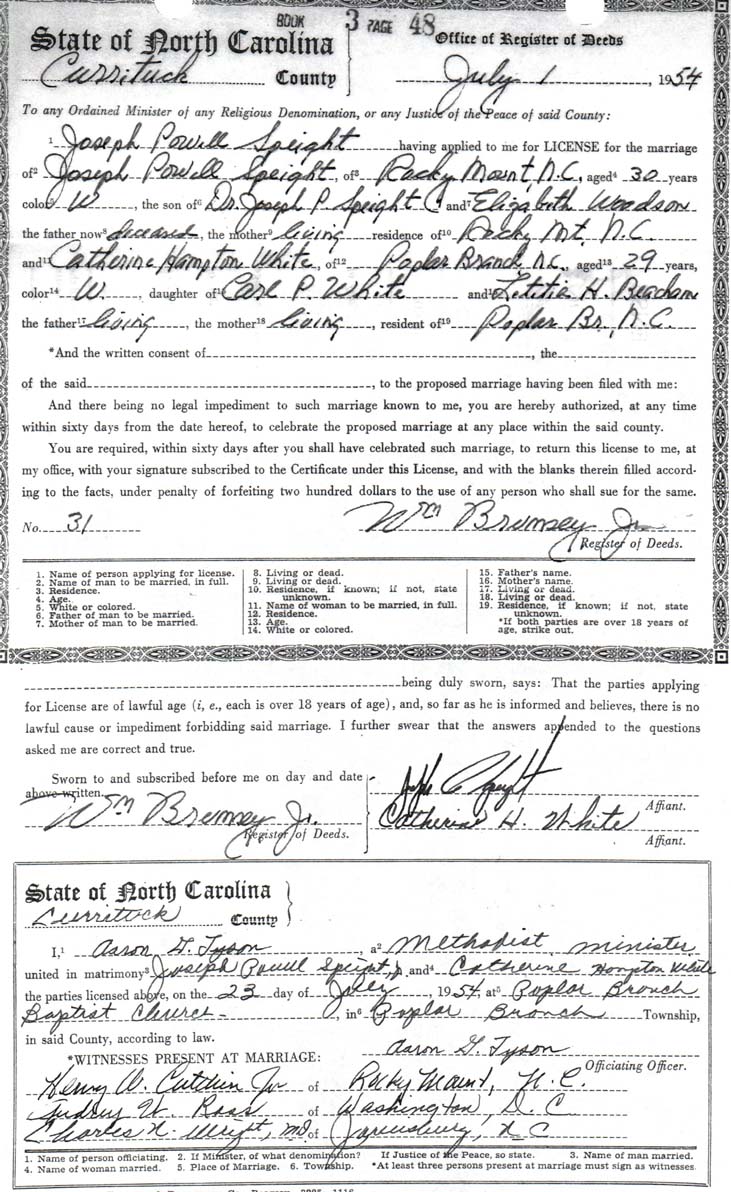 BOOK 3 PAGE 48
State of North Carolina Office of Register of Deeds
Currituck County July 1, 1954
To any Ordained Minister of any Religious Denomination, or any Justice of the Peace of said County:
1 Joseph Powell Speight having applied to me for LICENSE for the marriage
of2 Joseph Powell Speight, of3 Rocky Mount, N.C., aged4 30 years
color5 W, the son of6 Dr. Joseph P. Speight and7 Elizabeth Woodson
the father now8 deceased, the mother9 living residence of10 Rocky Mt. N.C.
and11 Catherine Hampton White, of12 Poplar Branch, N.C., aged13 29 years,
color14 W., daughter of15 Carl P. White and16 Letitia H. Beacham
the father17 living, the mother18 living, resident of19 Poplar Br., N.C.
*And the written consent of, the
of the said, to the proposed marriage having been filed with me:
And there being no legal impediment to such marriage known to me, you are hereby authorized, at any time
within sixty days from the date hereof, to celebrate the proposed marriage at any place within the said county.
You are required, within sixty days after you shall have celebrated such marriage, to return this license to me, at
my office, with your signature subscribed to the Certificate under this License, and with the blanks therein filled accord-
ing to the facts, under penalty of forfeiting two hundred dollars to the use of any person who shall sue for the same.
No. 31 Wm Brumsey Jr
Register of Deeds.
1. Name of person applying for license.
2. Name of man to be married, in full.
3. Residence.
4. Age.
5. White or colored.
6. Father of man to be married.
7. Mother of man to be married.
8. Living or dead.
9. Living or dead.
10. Residence, if known; if not, state
unknown.
11. Name of woman to be married, in full.
12. Residence.
13. Age.
14. White or colored.
15. Father's name.
16. Mother's name.
17. Living or dead.
18. Living or dead.
19. Residence, if known; if not, state
unknown.
*If both parties are over 18 years of
age, strike out.
being duly sworn, says: That the parties applying
for License are of lawful age (i, e., each is over 18 years of age), and, so far as he is informed and believes, there is no
lawful cause or impediment forbidding said marriage. I further swear that the answers appended to the questions
asked me are correct and true.
Sworn to and subscribed before me on day and date
above written.
Affiant.
Wm Brumsey Jr. Catherine H. White
Register of Deeds. Affiant.
State of North Carolina
Currituck County
I,1 Aaron G. Tyson, a2 Methodist minister
united in matrimony3 Joseph Powell Speight, Jr and4 Catherine Hampton White
the parties licensed above, on the 23 day of July 1954 at5 Poplar Branch
Baptist Church, in6 Poplar Branch Township,
in said County, according to law.
Aaron G. Tyson
*WITNESSES PRESENT AT MARRIAGE: Officiating Officer.
Henry W. Cutchin Jr of Rocky Mount, N.C.
W. Ross of Washington, D C
Charles N. Wright, MD of N C
1. Name of person officiating. 2. If Minister, of what denomination? If Justice of the Peace, so state. 3. Name of man married.
4. Name of woman married. 5. Place of Marriage. 6. Township. *At least three persons present at marriage must sign as witnesses.